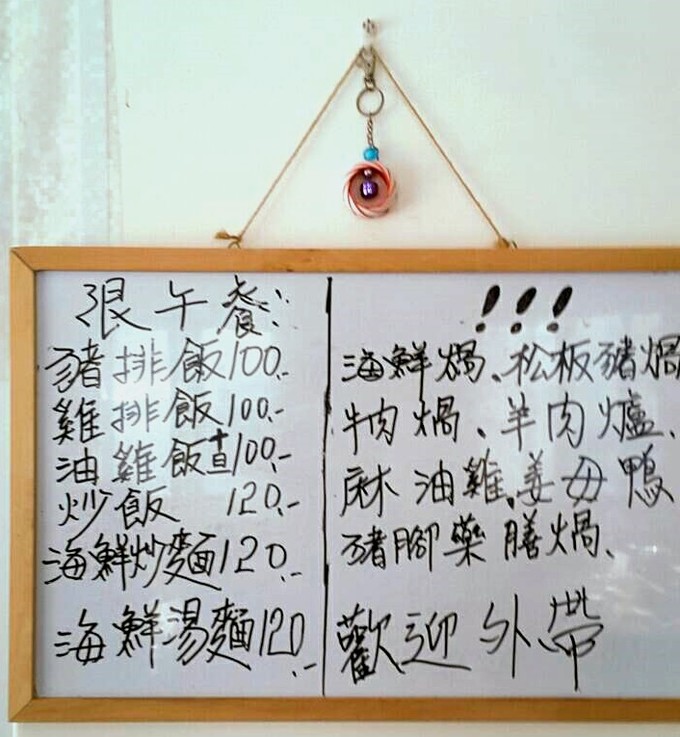 限午餐:
豬排飯100.-
雞排飯100.-
油雞飯100.-
炒飯 120.-
海鮮炒麵120.-
海鮮湯麵120.-
!!!
海鮮煱、松板豬煱
牛肉煱、羊肉爐、
麻油雞、姜母鴨
豬腳藥膳煱、
歡迎外帶